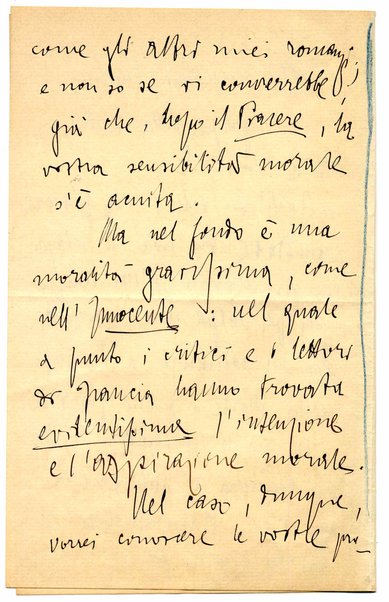 come gli altri miei romanzi;
e non so se vi converrebbe,
già che, dopo il Piacere, la
vostra sensibilità morale
s'è acuita.
Ma nel fondo è una
moralità gravissima, come
nell'Innocente: nel quale
a punto i critici e i lettori
di Francia hanno trovata
evidentissima l'intenzione
e l'aspirazione morale.
Nel caso, dunque,
vorrei conoscere le vostre pro-